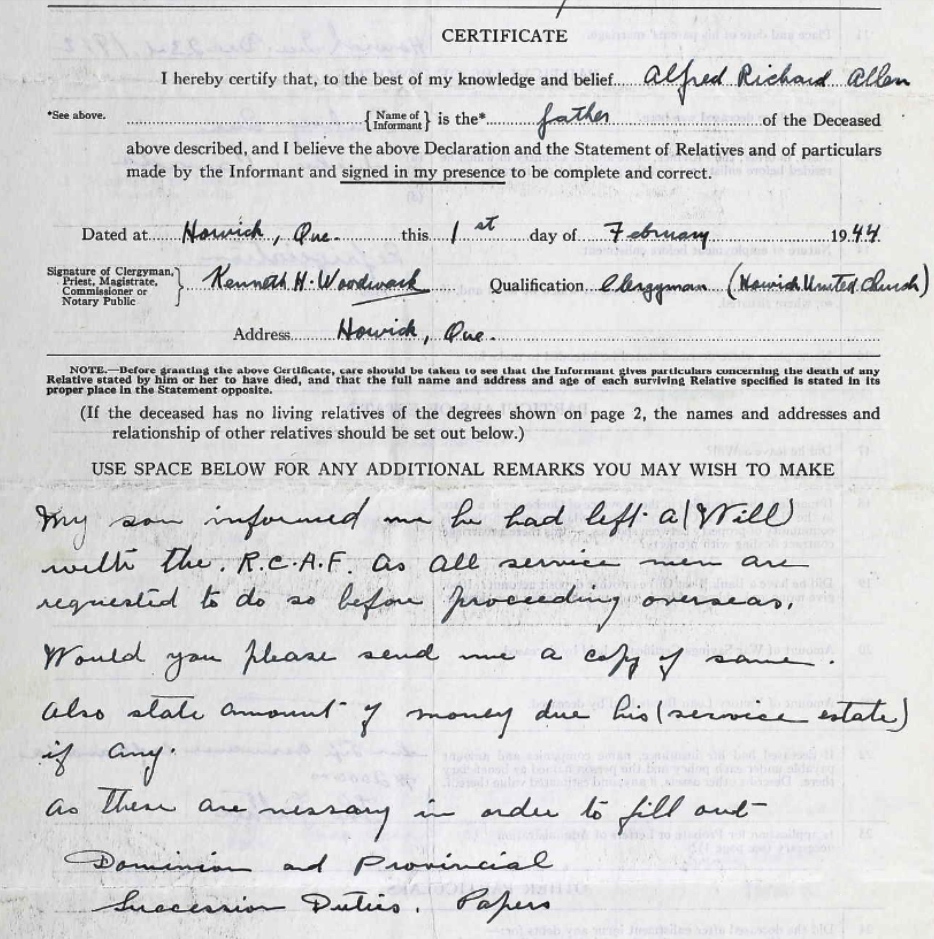 CERTIFICATE
I hereby certify that, to the best of my knowledge and belief.... Alfred Richard Allen
*See above. {Name of Informant} is the* father of the Deceased
above described, and I believe the above Declaration and the Statement of Relatives and of particulars
made by the Informant and signed in my presence to be complete and correct.
Dated at Howick, Que. this 1st day of February 1944
Signature of Clergyman, Priest, Magistrate, Commissioner or Notary Public } Kenneth H. Woodwark Qualification Clergyman (Howick United Church)
Address Howick, Que.
NOTE.—Before granting the above Certificate, care should be taken to see that the Informant gives particulars concerning the death of any
Relative stated by him or her to have died, and that the full name and address and age of each surviving Relative specified is stated in its
proper place in the Statement opposite.
(If the deceased has no living relatives of the degrees shown on page 2, the names and addresses and
relationship of other relatives should be set out below.)
USE SPACE BELOW FOR ANY ADDITIONAL REMARKS YOU MAY WISH TO MAKE
My son informed me he had left a (Will)
with the. R.C.A.F. as all service men are
requested to do so before proceeding overseas.
Would you please send me a copy of same.
Also state amount of money due his (service estate)
if any.
as these are nessary in order to fill out
Dominion and Provincial
Succession Duties. Papers